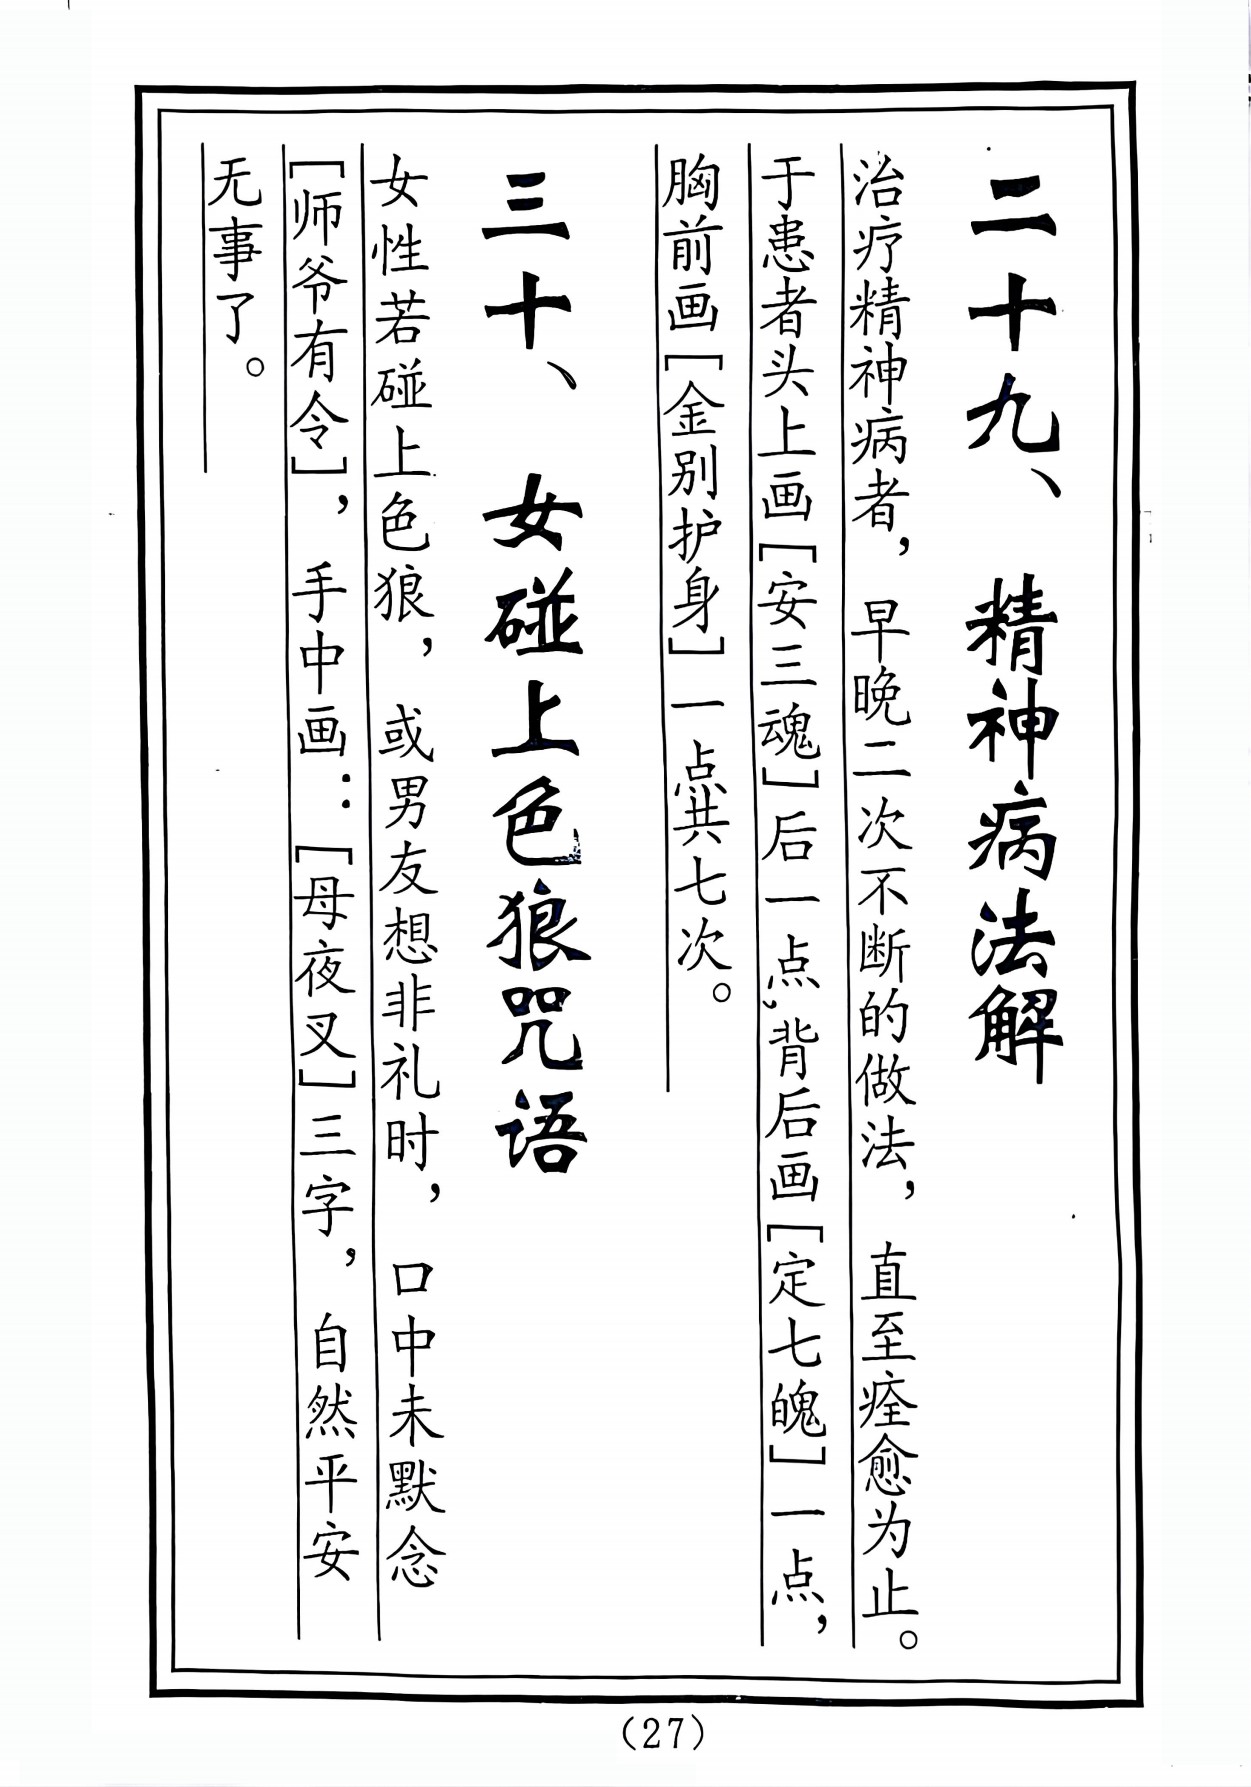 二十九、精神病法解
治疗精神病者，早晚二次不断的做法，直至痊愈为止。
于患者头上画［安三魂］后一点，背后画［定七魄］一点，
胸前画［金别护身］一点共七次。
三十、女碰上色狼咒语
女性若碰上色狼，或男友想非礼时，口中未默念
［师爷有令］，手中画：［母夜叉］三字，自然平安
无事了。
（27）